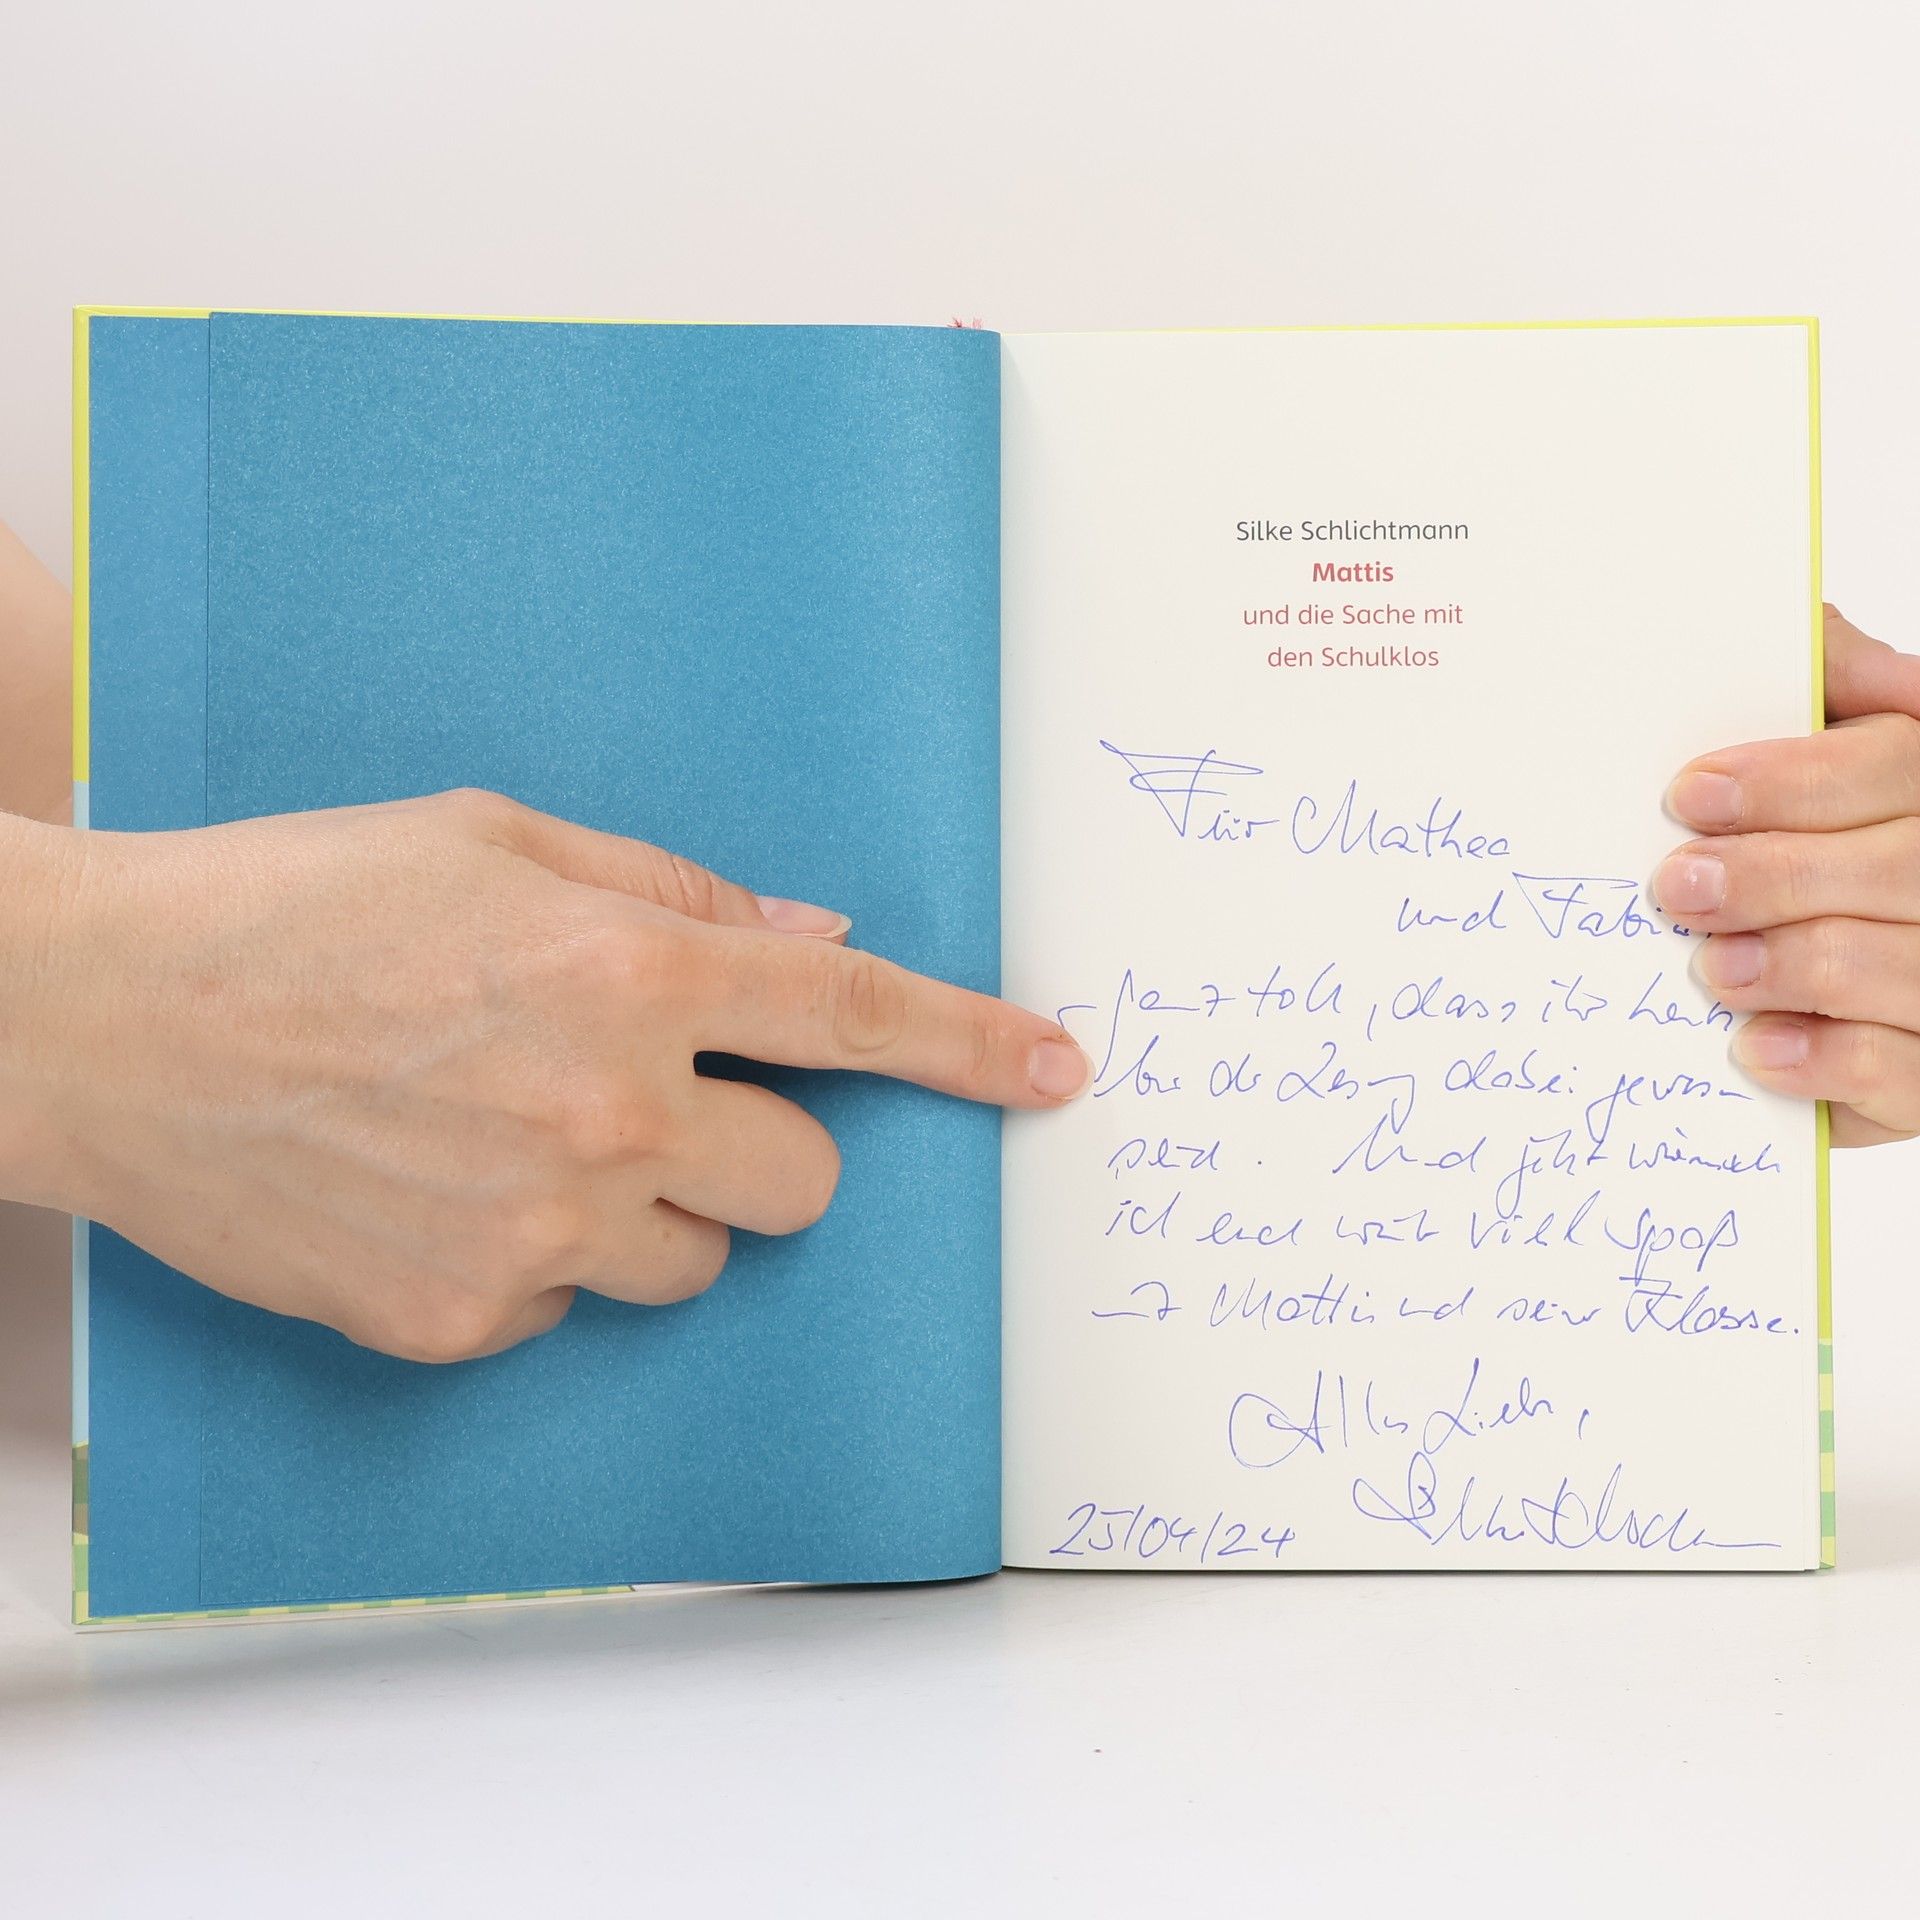 Silke Schlichtmann
Mattis
und die Sache mit
den Schulklos
Für Matheo
und Fabia
- ganz toll, dass ihr heute
bei der Lesung dabei gewesen
seid. Und jetzt wünsche
ich euch weit viel Spaß
mit Mattis und seiner Klasse.
Alles Liebe,
Silke Schlichtmann
25/04/24